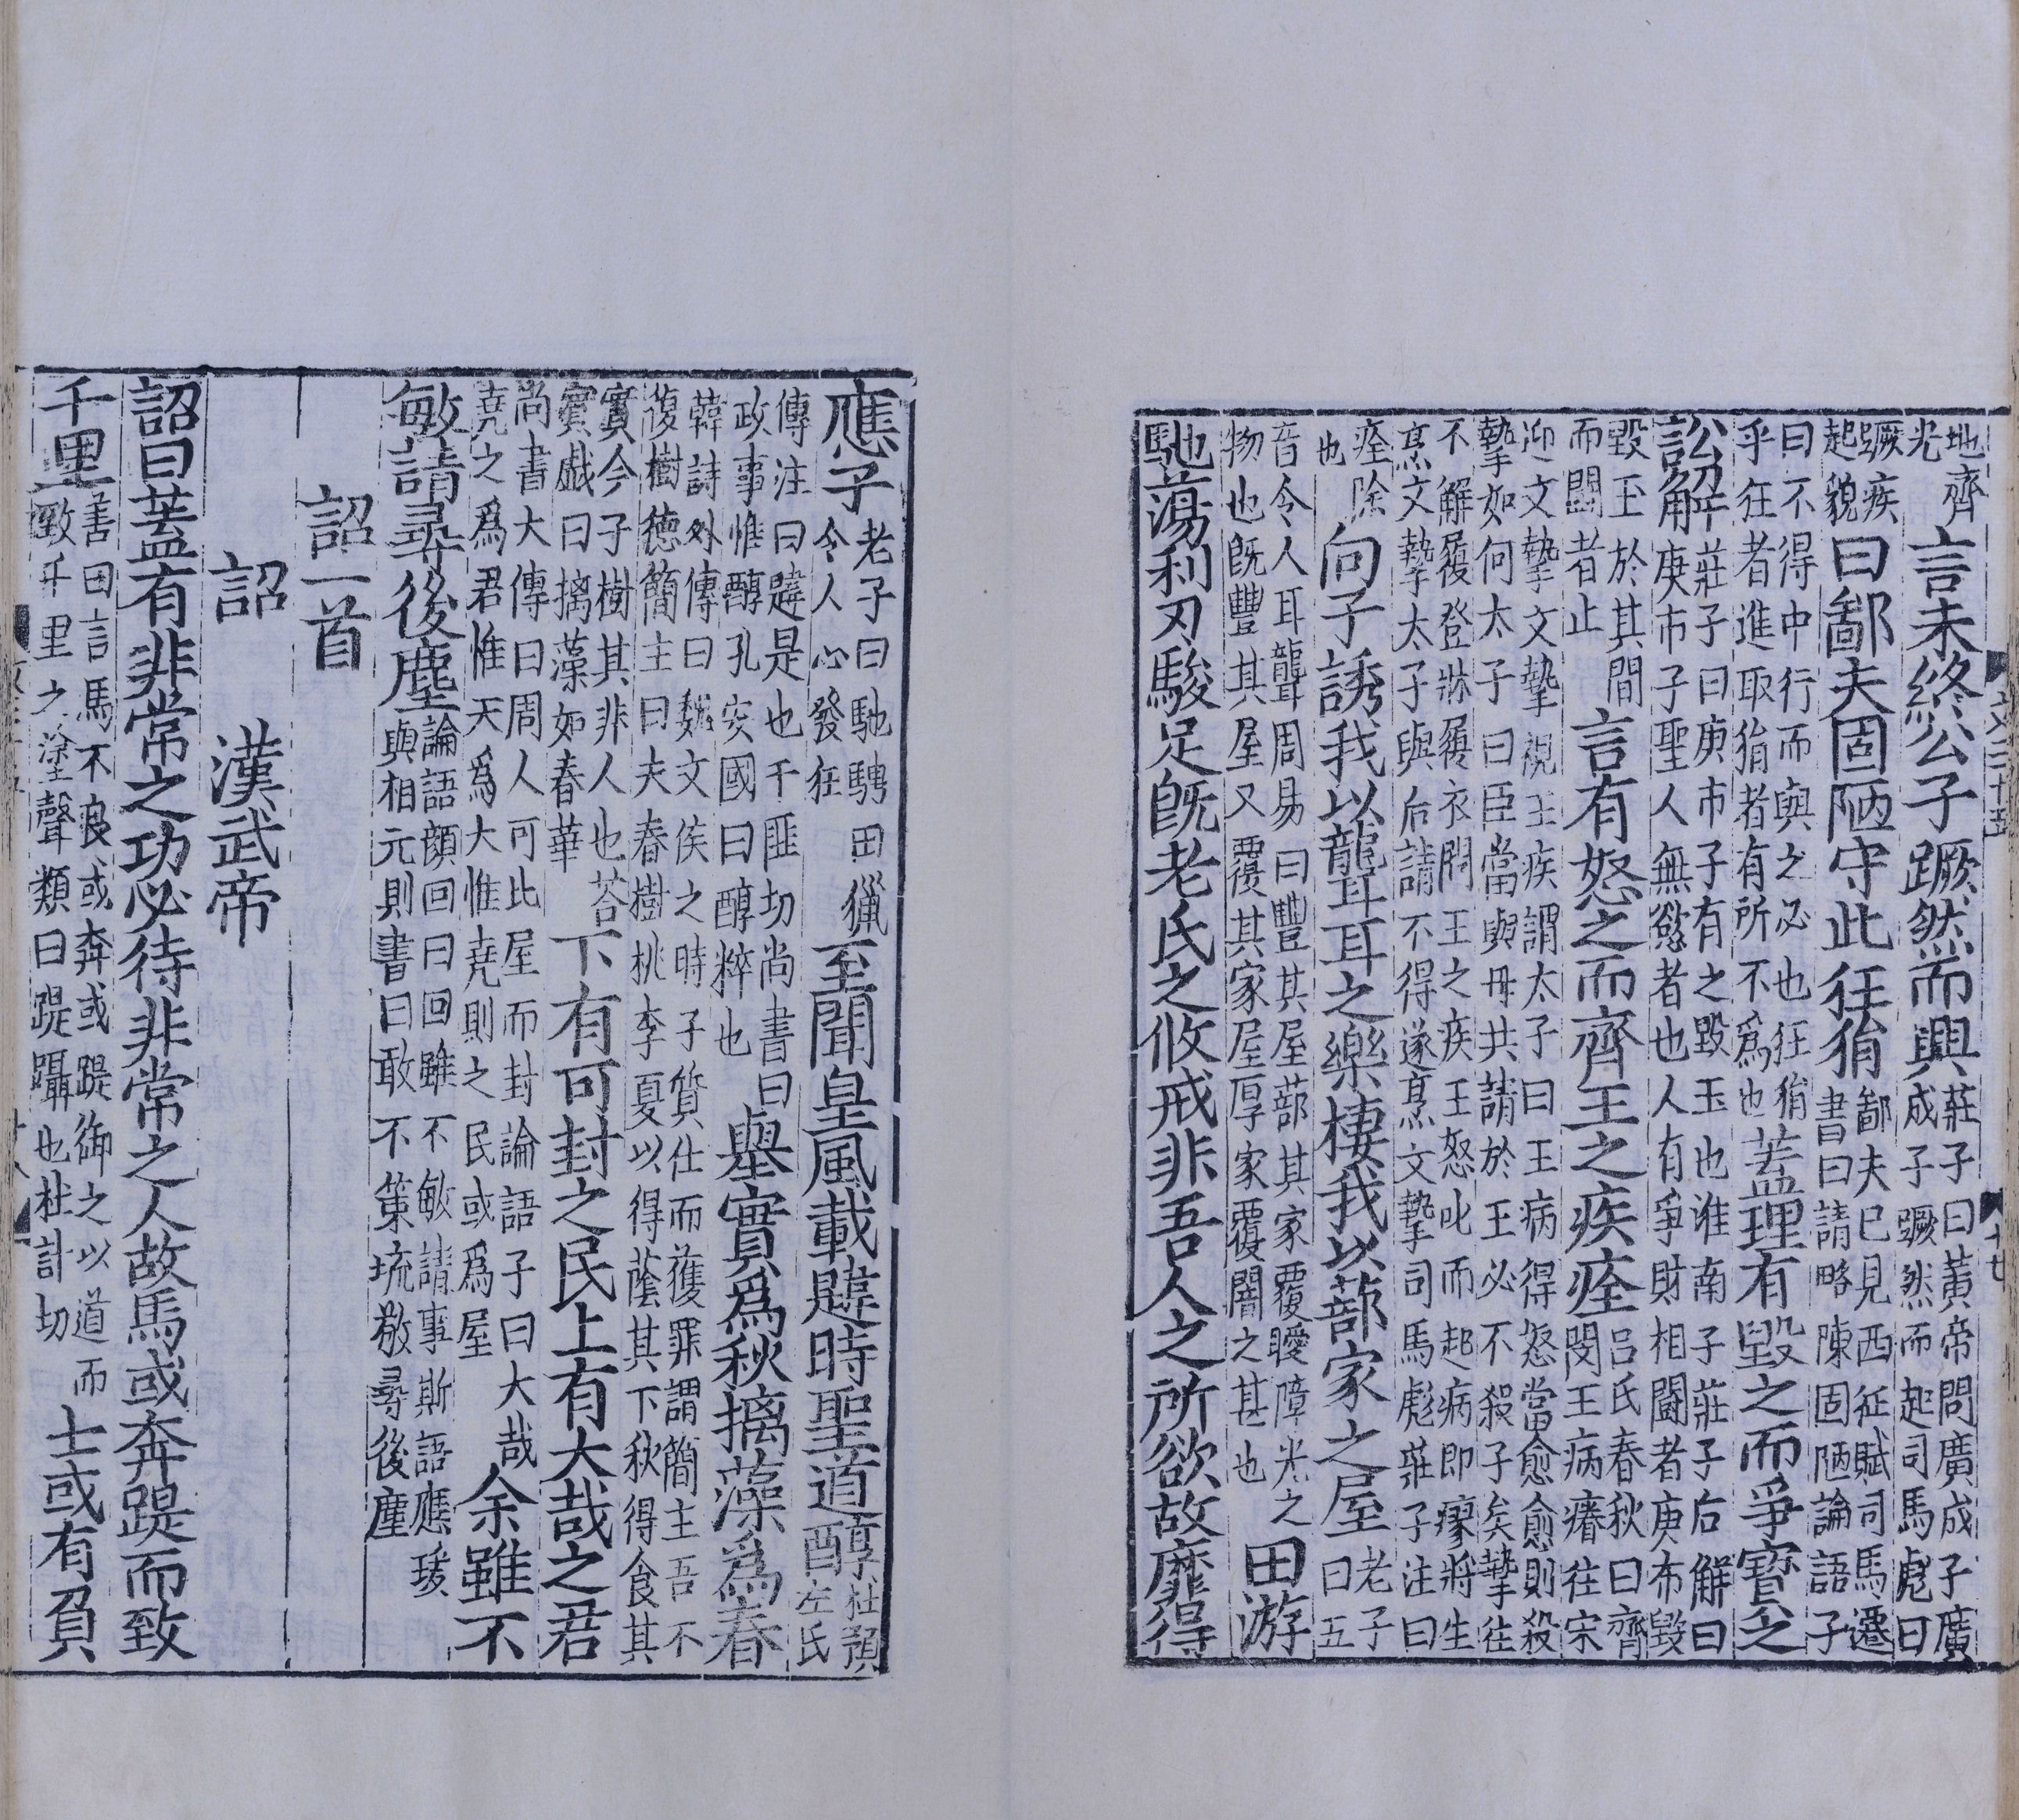 地齊
光 言未終公子蹶然而興 莊子曰黃帝問廣成子廣
成子蹶然而起司馬彪曰
蹶疾
起貌 曰鄙夫固陋守此狂狷 鄙夫已見西征賦司馬遷
書曰請略陳固陋論語子
曰不得中行而與之必也狂狷
乎狂者進取狷者有所不爲也 蓋理有毀之而爭寶之
訟解 莊子曰庚市子有之毀玉也淮南子莊子后解曰
庚市子聖人無慾者也人有爭財相鬭者庚布毀
毀玉於其間
而鬭者止 言有怒之而齊王之疾痊 呂氏春秋曰齊
閔王病瘠往宋
迎文摯文摯視王疾謂太子曰王病得怒當愈愈則殺
摯如何太子曰臣當與母共請於王必不殺子矣摯往
不解履登牀履衣問王之疾王怒叱而起病即瘳將生
烹文摯太子與后請不得遂烹文摯司馬彪莊子注曰
痊除
也 向子誘我以聾耳之樂棲我以蔀家之屋 老子
曰五
音令人耳聾周易曰豐其屋蔀其家覆曖障光之
物也旣豐其屋又覆其家屋厚家覆闇之甚也 田游
馳蕩利刃駿足旣老氏之攸戒非吾人之所欲故靡得
文三十五
十七
應子 老子曰馳騁田獵
令人心發狂 至聞皇風載韙時聖道醇 杜預
左氏
傳注曰韙是也于匪切尚書曰
政事惟醇孔安國曰醇粹也 舉實爲秋摛藻爲春
韓詩外傳曰魏文侯之時子質仕而獲罪謂簡主吾不
復樹德簡主曰夫春樹桃李夏以得蔭其下秋得食其
實今子樹其非人也荅
賓戲曰摛藻如春華 下有可封之民上有大哉之君
尚書大傳曰周人可比屋而封論語子曰大哉
堯之爲君惟天爲大惟堯則之民或爲屋 余雖不
敏請尋後塵 論語顏回曰回雖不敏請事斯語應璩
與相元則書曰敢不策琉敬尋後塵
詔一首
詔 漢武帝
詔曰蓋有非常之功必待非常之人故馬或奔踶而致
千里 善曰言馬不良或奔或踶御之以道而
致千里之塗聲類曰踶躡也杜計切 士或有負